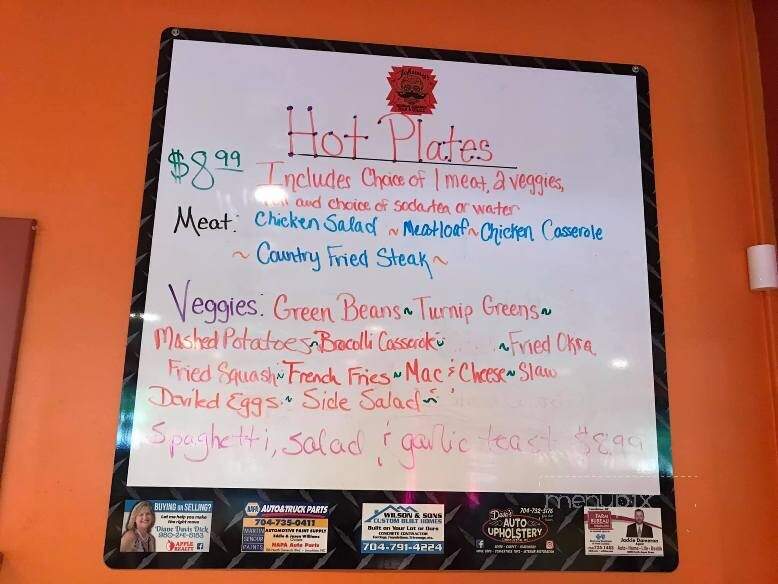 Hot Plates
$8.99
Includes Choice of 1 meat, 2 veggies,
and choice of soda, tea or water
Meat: Chicken Salad ~ Meatloaf ~ Chicken Casserole
~ Country Fried Steak ~
Veggies: Green Beans ~ Turnip Greens ~
Mashed Potatoes ~ Brocolli Casserole ~ ~ Fried Okra
Fried Squash ~ French Fries ~ Mac & Cheese ~ Slaw
Deviled Eggs ~ Side Salad ~
Spaghetti, salad & garlic toast $8.99
menupix
BUYING or SELLING?
Let me help you make
the right move
Diane Davis Dick
APPLE
REALTY
NAPA AUTO & TRUCK PARTS
704-735-0411
MARTIN SENOUR PAINTS
AUTOMOTIVE PAINT SUPPLY
NAPA Auto Parts
WILSON & SONS
CUSTOM BUILT HOMES
Built on Your Lot or Ours
CONCRETE CONTRACTOR
704-791-4224
Dave's
AUTO
UPHOLSTERY
704-732-3176
FARM
BUREAU
Jackie Dameron
Agent
Auto • Home • Life • Health